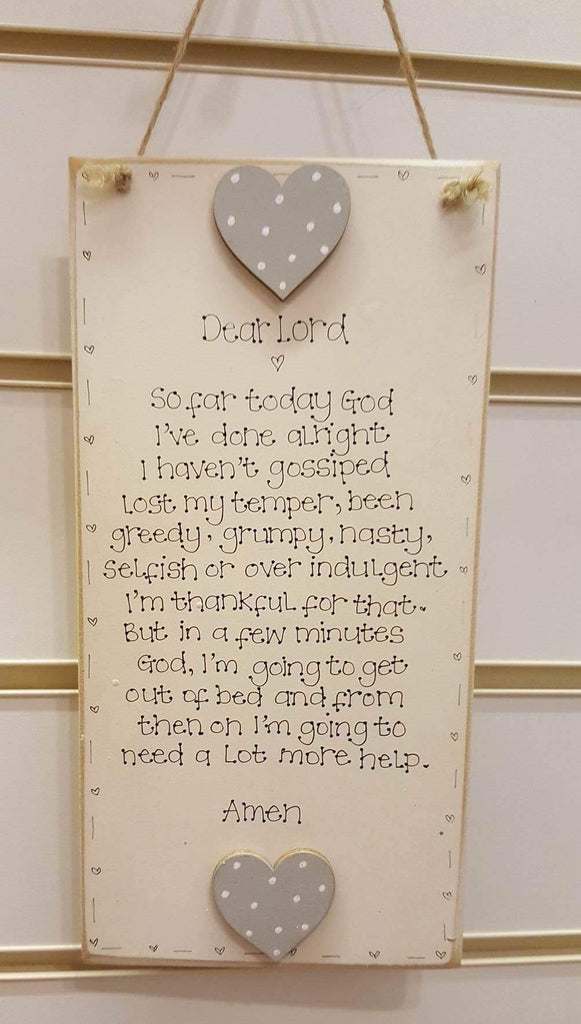 Dear Lord
So far today God
I've done alright
I haven't gossiped
Lost my temper, been
greedy, grumpy, nasty,
selfish or over indulgent
I'm thankful for that.
But in a few minutes
God, I'm going to get
out of bed and from
then on I'm going to
need a Lot more help.
Amen